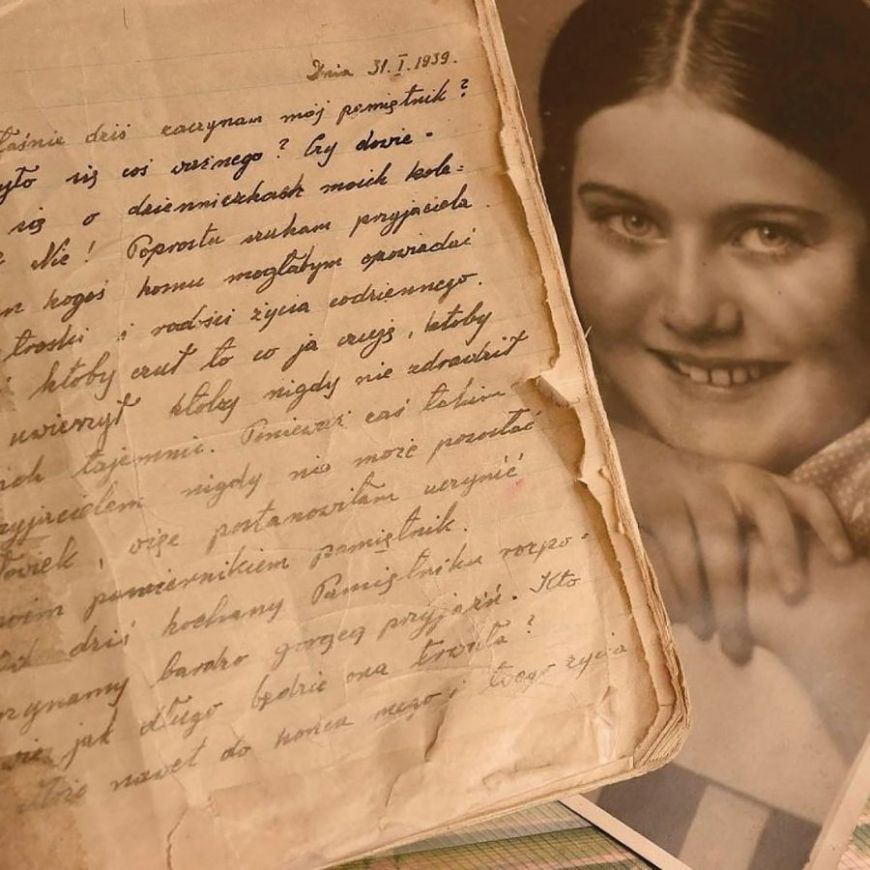 Dnia 31.I.1939.
dziś zaczynam mój pamiętnik?
się coś ważnego? Czy dowie-
się o dzienniczkach moich kole-
Nie! Poprostu szukam przyjaciela.
kogoś komu mogłabym opowiadać
troski i radości życia codziennego.
któby czuł to co ja czuję, któby
uwierzył któby nigdy nie zdradził
tajemnic. Ponieważ coś takim
nigdy nie może pozostać
, więc postanowiłam uczynić
powiernikiem pamiętnik.
dziś kochany Pamiętniku rozpo-
bardzo gorącą przyjaźń. Kto
jak długo będzie ona trwała?
nawet do końca mego i twego życia